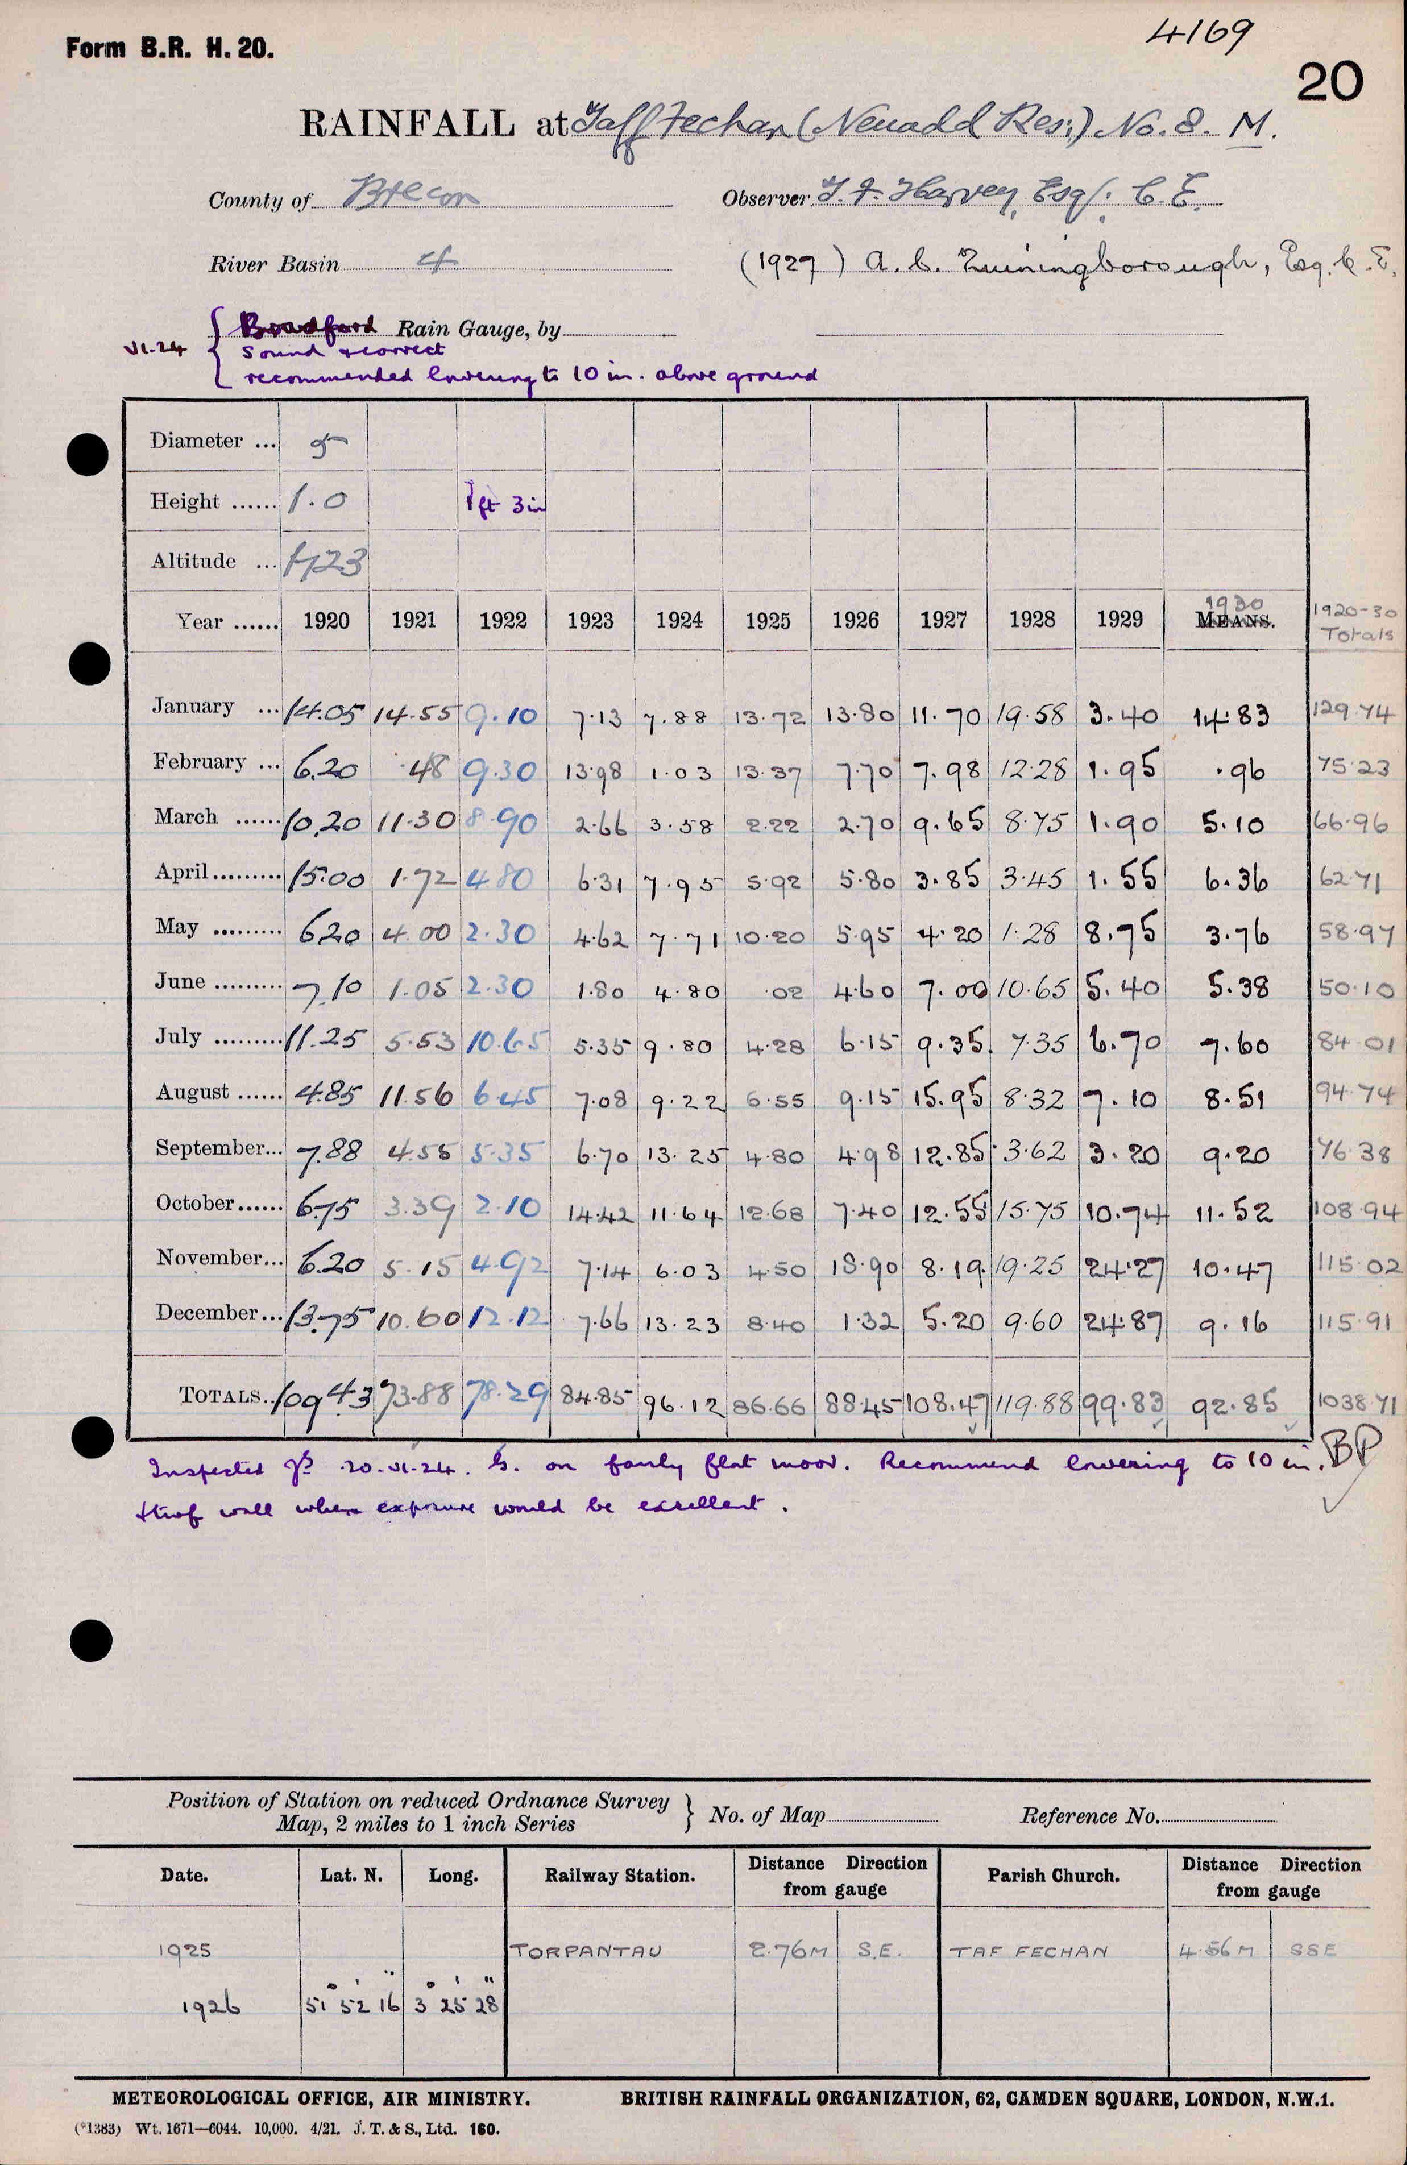 Form B.R. H. 20.
4169
20
RAINFALL at Taff Fechan (Neuadd Res:) No. 8. M.
County of Brecon Observer T. F. Harvey, Esq. C. E.
River Basin 4 (1927) A. C. Esq. C. E.
VI.24 { Bradford Rain Gauge, by
sound & correct
recommended lowering to 10 in. above ground
Diameter ... 5
Height ...... 1.0 1 ft 3 in
Altitude ...
Year ...... 1920 1921 1922 1923 1924 1925 1926 1927 1928 1929 MEANS. 1930 1920-30 Totals
January ... 14.05 14.55 9.10 7.13 7.88 13.72 13.80 11.70 19.58 3.40 14.83 129.74
February ... 6.20 .48 9.30 13.98 1.03 13.37 7.70 7.98 12.28 1.95 .96 75.23
March ...... 10.20 11.30 8.90 2.66 3.58 2.22 2.70 9.65 8.75 1.90 5.10 66.96
April ......... 15.00 1.72 4.80 6.31 7.95 5.92 5.80 3.85 3.45 1.55 6.36 62.71
May ......... 6.20 4.00 2.30 4.62 7.71 10.20 5.95 4.20 1.28 8.75 3.76 58.97
June ......... 7.10 1.05 2.30 1.80 4.80 .02 4.60 7.00 10.65 5.40 5.38 50.10
July ......... 11.25 5.53 10.65 5.35 9.80 4.28 6.15 9.35 7.35 6.70 7.60 84.01
August ...... 4.85 11.56 6.45 7.08 9.22 6.55 9.15 15.95 8.32 7.10 8.51 94.74
September... 7.88 4.55 5.35 6.70 13.25 4.80 4.98 12.85 3.62 3.20 9.20 76.38
October...... 6.75 3.39 2.10 14.42 11.64 12.68 7.40 12.55 15.75 10.74 11.52 108.94
November... 6.20 5.15 4.92 7.14 6.03 4.50 18.90 8.19 19.25 24.27 10.47 115.02
December... 13.75 10.60 12.12 7.66 13.23 8.40 1.32 5.20 9.60 24.87 9.16 115.91
TOTALS.. 109.43 73.88 78.29 84.85 96.12 86.66 88.45 108.47 119.88 99.83 92.85 1038.71
Inspected 20.VI.24. G. on fairly flat moor. Recommend lowering to 10 in. BP
turf wall when exposure would be excellent.
Position of Station on reduced Ordnance Survey Map, 2 miles to 1 inch Series } No. of Map Reference No.
Date. Lat. N. Long. Railway Station. Distance Direction from gauge Parish Church. Distance Direction from gauge
1925 TORPANTAU 2.76M S.E. TAF FECHAN 4.56M SSE
1926 51° 52' 16" 3° 25' 28"
METEOROLOGICAL OFFICE, AIR MINISTRY. BRITISH RAINFALL ORGANIZATION, 62, CAMDEN SQUARE, LONDON, N.W.1.
(*1383) Wt. 1671—6044. 10,000. 4/21. J. T. & S., Ltd. 160.